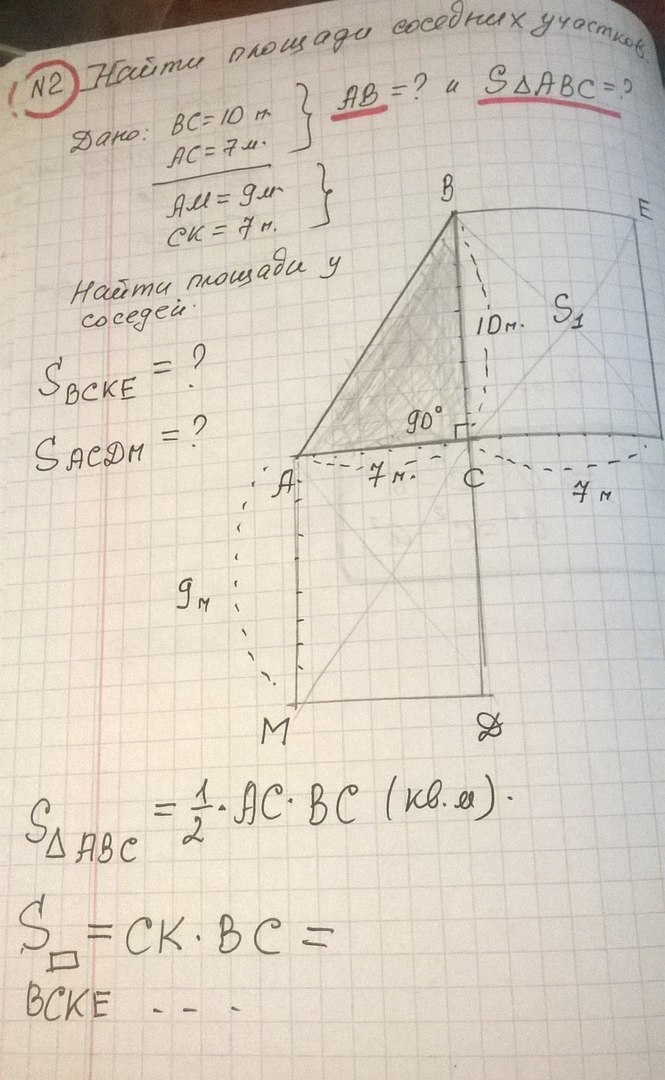 ! N2 Найти площади соседних участков.
Дано: BC = 10 м.
AC = 7 м.
AB = ? и S△ABC = ?
AM = 9 м
CK = 7 м.
Найти площади у
соседей.
S BCKE = ?
S ACDM = ?
B
E
10 м.
S1
90°
A
7 м.
C
7 м
9 м
M
D
S△ABC = 1/2 · AC · BC (кв.м).
S▭ = CK · BC =
BCKE - - -